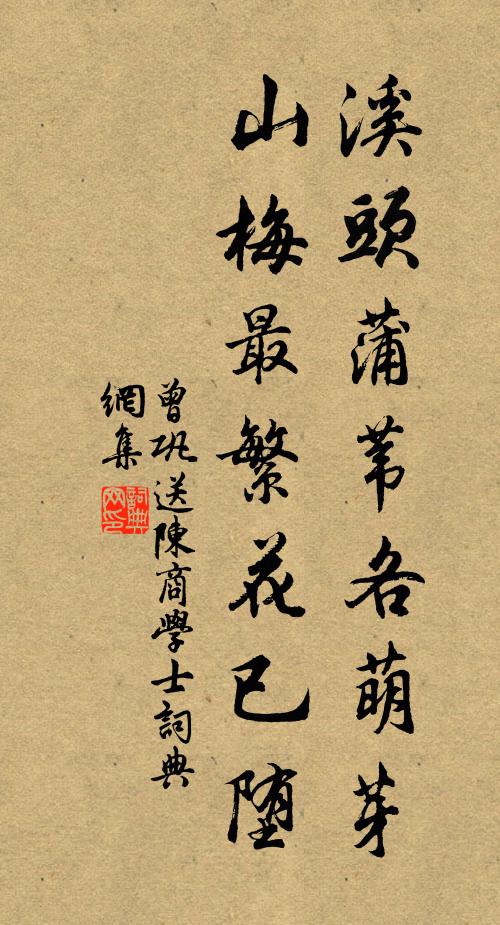 溪頭蒲苇各萌芽
山梅最繁花已堕
曾巩送陳商學士詞典
網集
詞典
网印